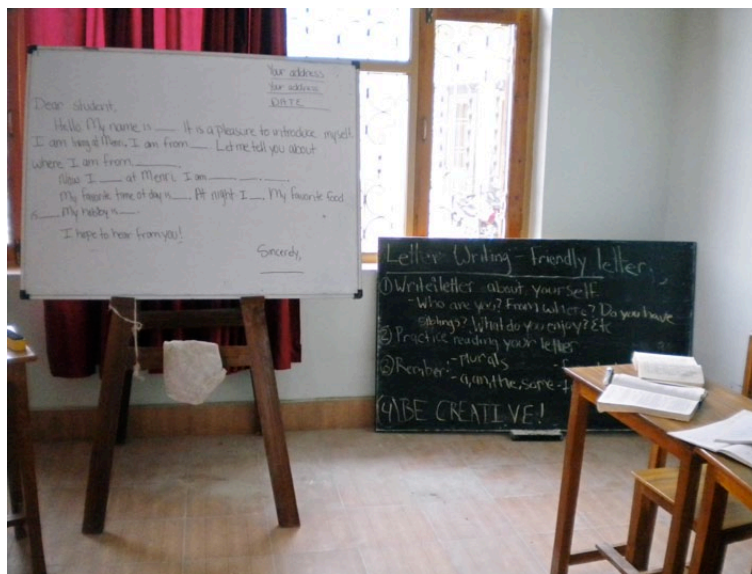 Your address
Your address
DATE
Dear student,
Hello My name is ___ It is a pleasure to introduce myself.
I am living at Menri. I am from ___ Let me tell you about
where I am from ______.
Now I ___ at Menri. I am ___ ___ . ___
My favorite time of day is ___. At night I ___. My favorite food
is ___ My hobby is ___.
I hope to hear from you!
Sincerely,
Letter Writing - Friendly letter
① Write letter about yourself
- Who are you? From where? Do you have
siblings? What do you enjoy? Etc
② Practice reading your letter
③ - Plurals
- a, an, the, some
④ BE CREATIVE!